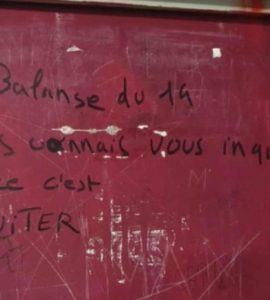 Balanse du 19
s connais vous inqu
ce c'est
iTER